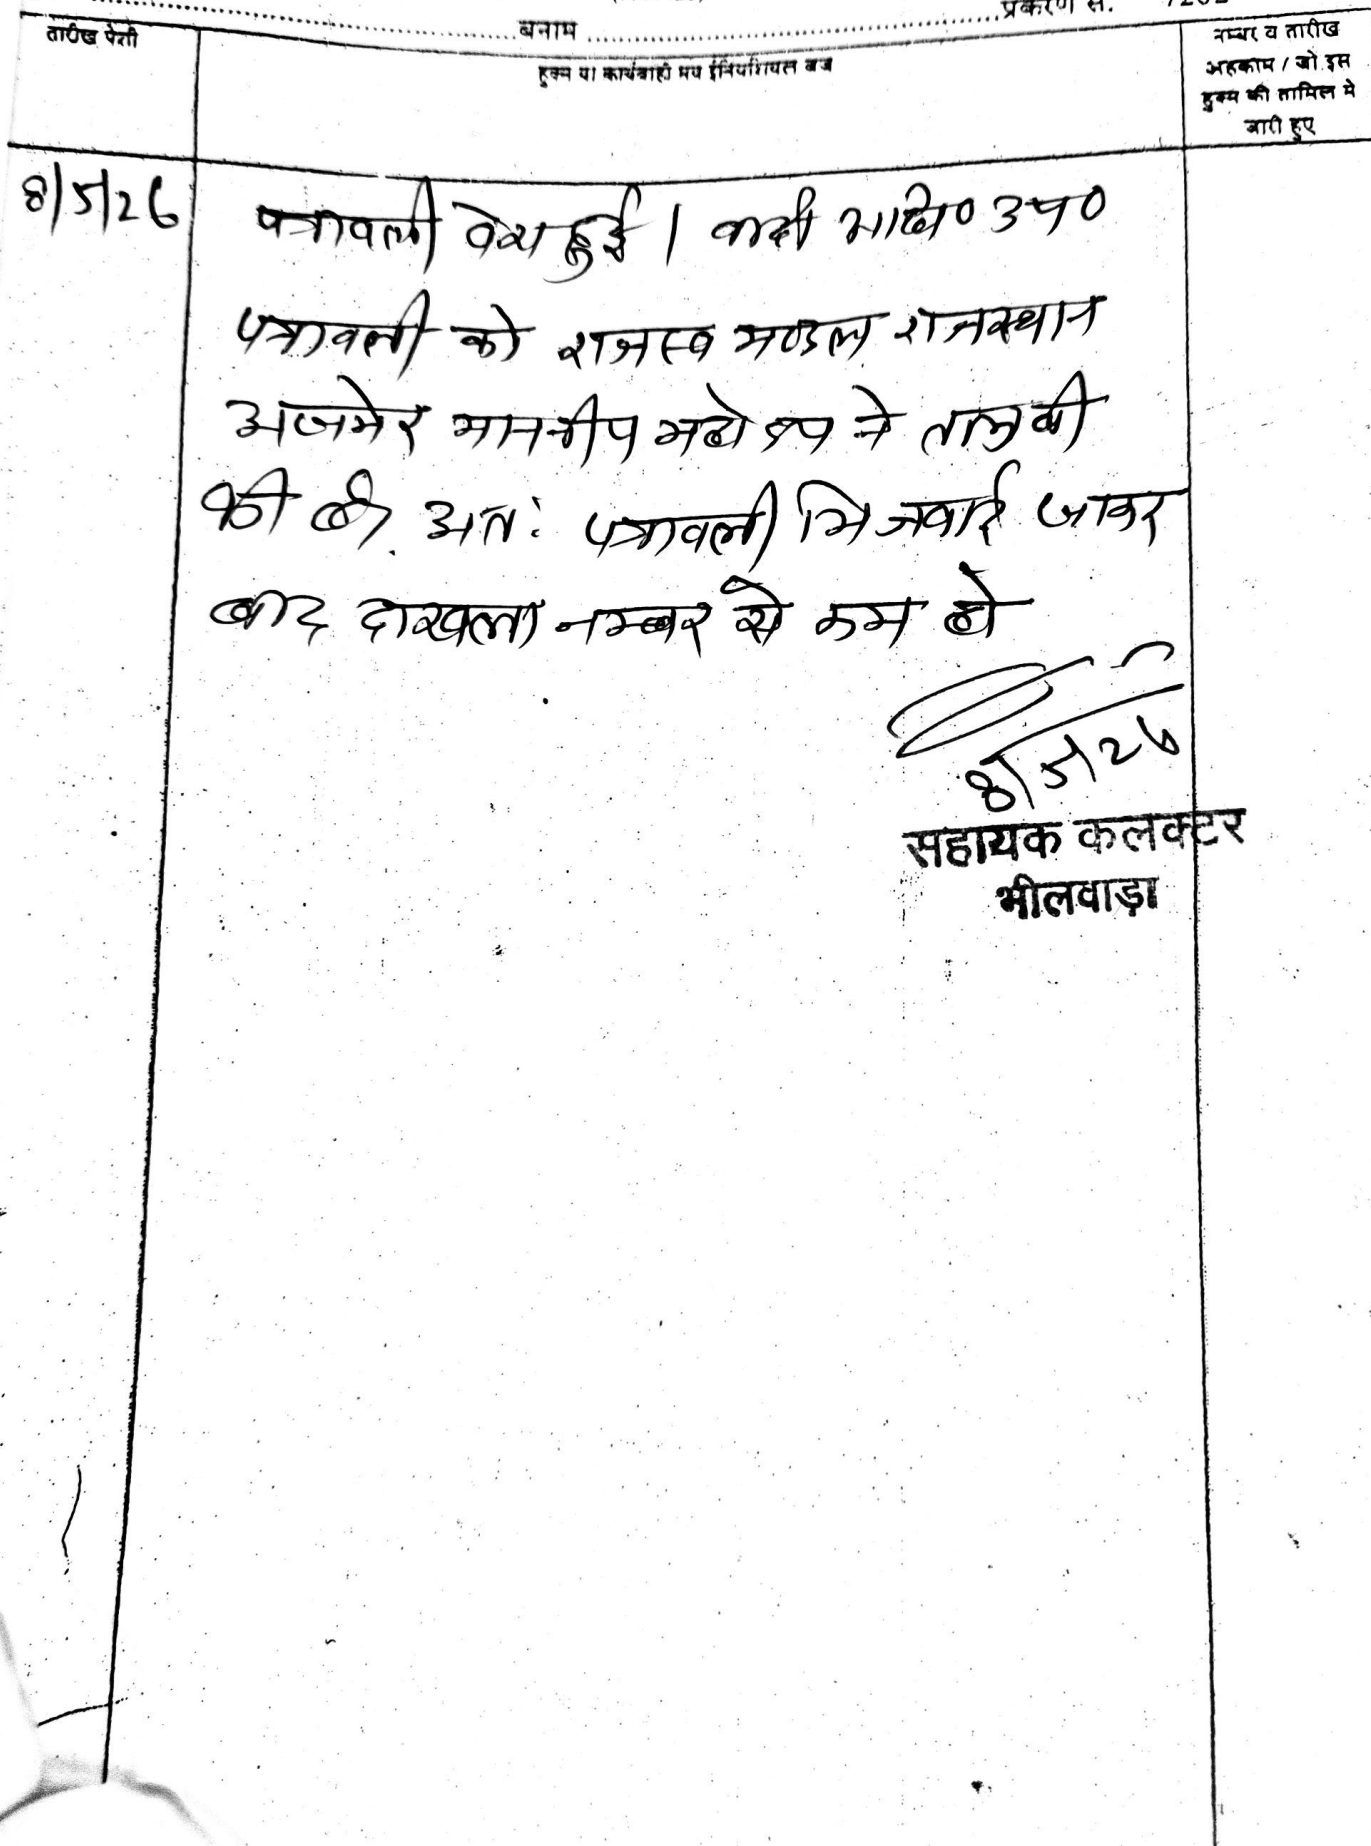 बनाम प्रकरण सं.
तारीख पेशी
हुक्म या कार्यवाही मय इनिशियल जज
नम्बर व तारीख
अहकाम / जो इस
हुक्म की तामिल मे
जारी हुए
8/5/26 पत्रावली पेश हुई । वादी अधि० उप०
पत्रावली को राजस्व मण्डल राजस्थान
अजमेर माननीय महोदय ने तलबी
की है. अतः पत्रावली भिजवाई जाकर
बाद दाखला नम्बर से कम हो
8/5/26
सहायक कलक्टर
भीलवाड़ा